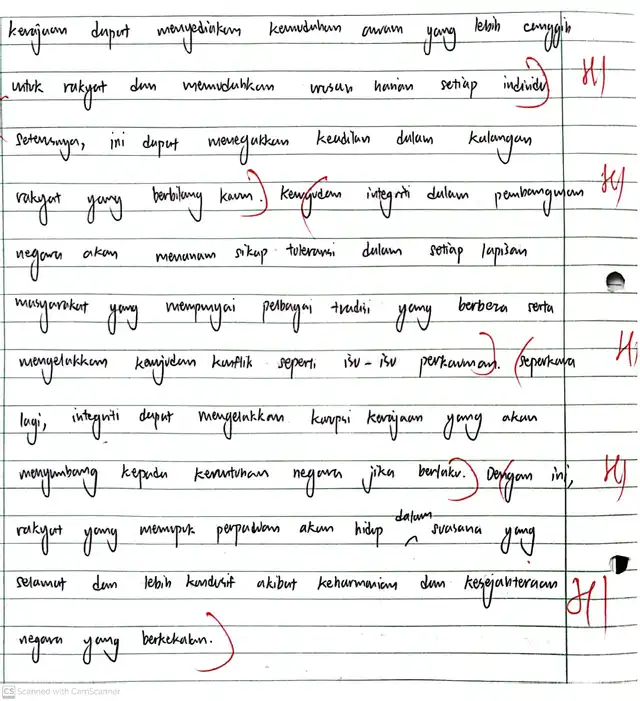 kerajaan dapat menyediakan kemudahan awam yang lebih canggih
untuk rakyat dan memudahkan urusan harian setiap individu H1
Seterusnya, ini dapat menegakkan keadilan dalam kalangan
rakyat yang berbilang kaum. Kewujudan integriti dalam pembangunan H1
negara akan menanam sikap toleransi dalam setiap lapisan
masyarakat yang mempunyai pelbagai tradisi yang berbeza serta
mengelakkan kewujudan konflik seperti isu-isu perkauman. Seperkara H1
lagi, integriti dapat mengelakkan korupsi kerajaan yang akan
menyumbang kepada keruntuhan negara jika berlaku. Dengan ini, H1
rakyat yang memupuk perpaduan akan hidup dalam suasana yang
selamat dan lebih kondusif akibat keharmonian dan kesejahteraan H1
negara yang berkekalan.
CS Scanned with CamScanner